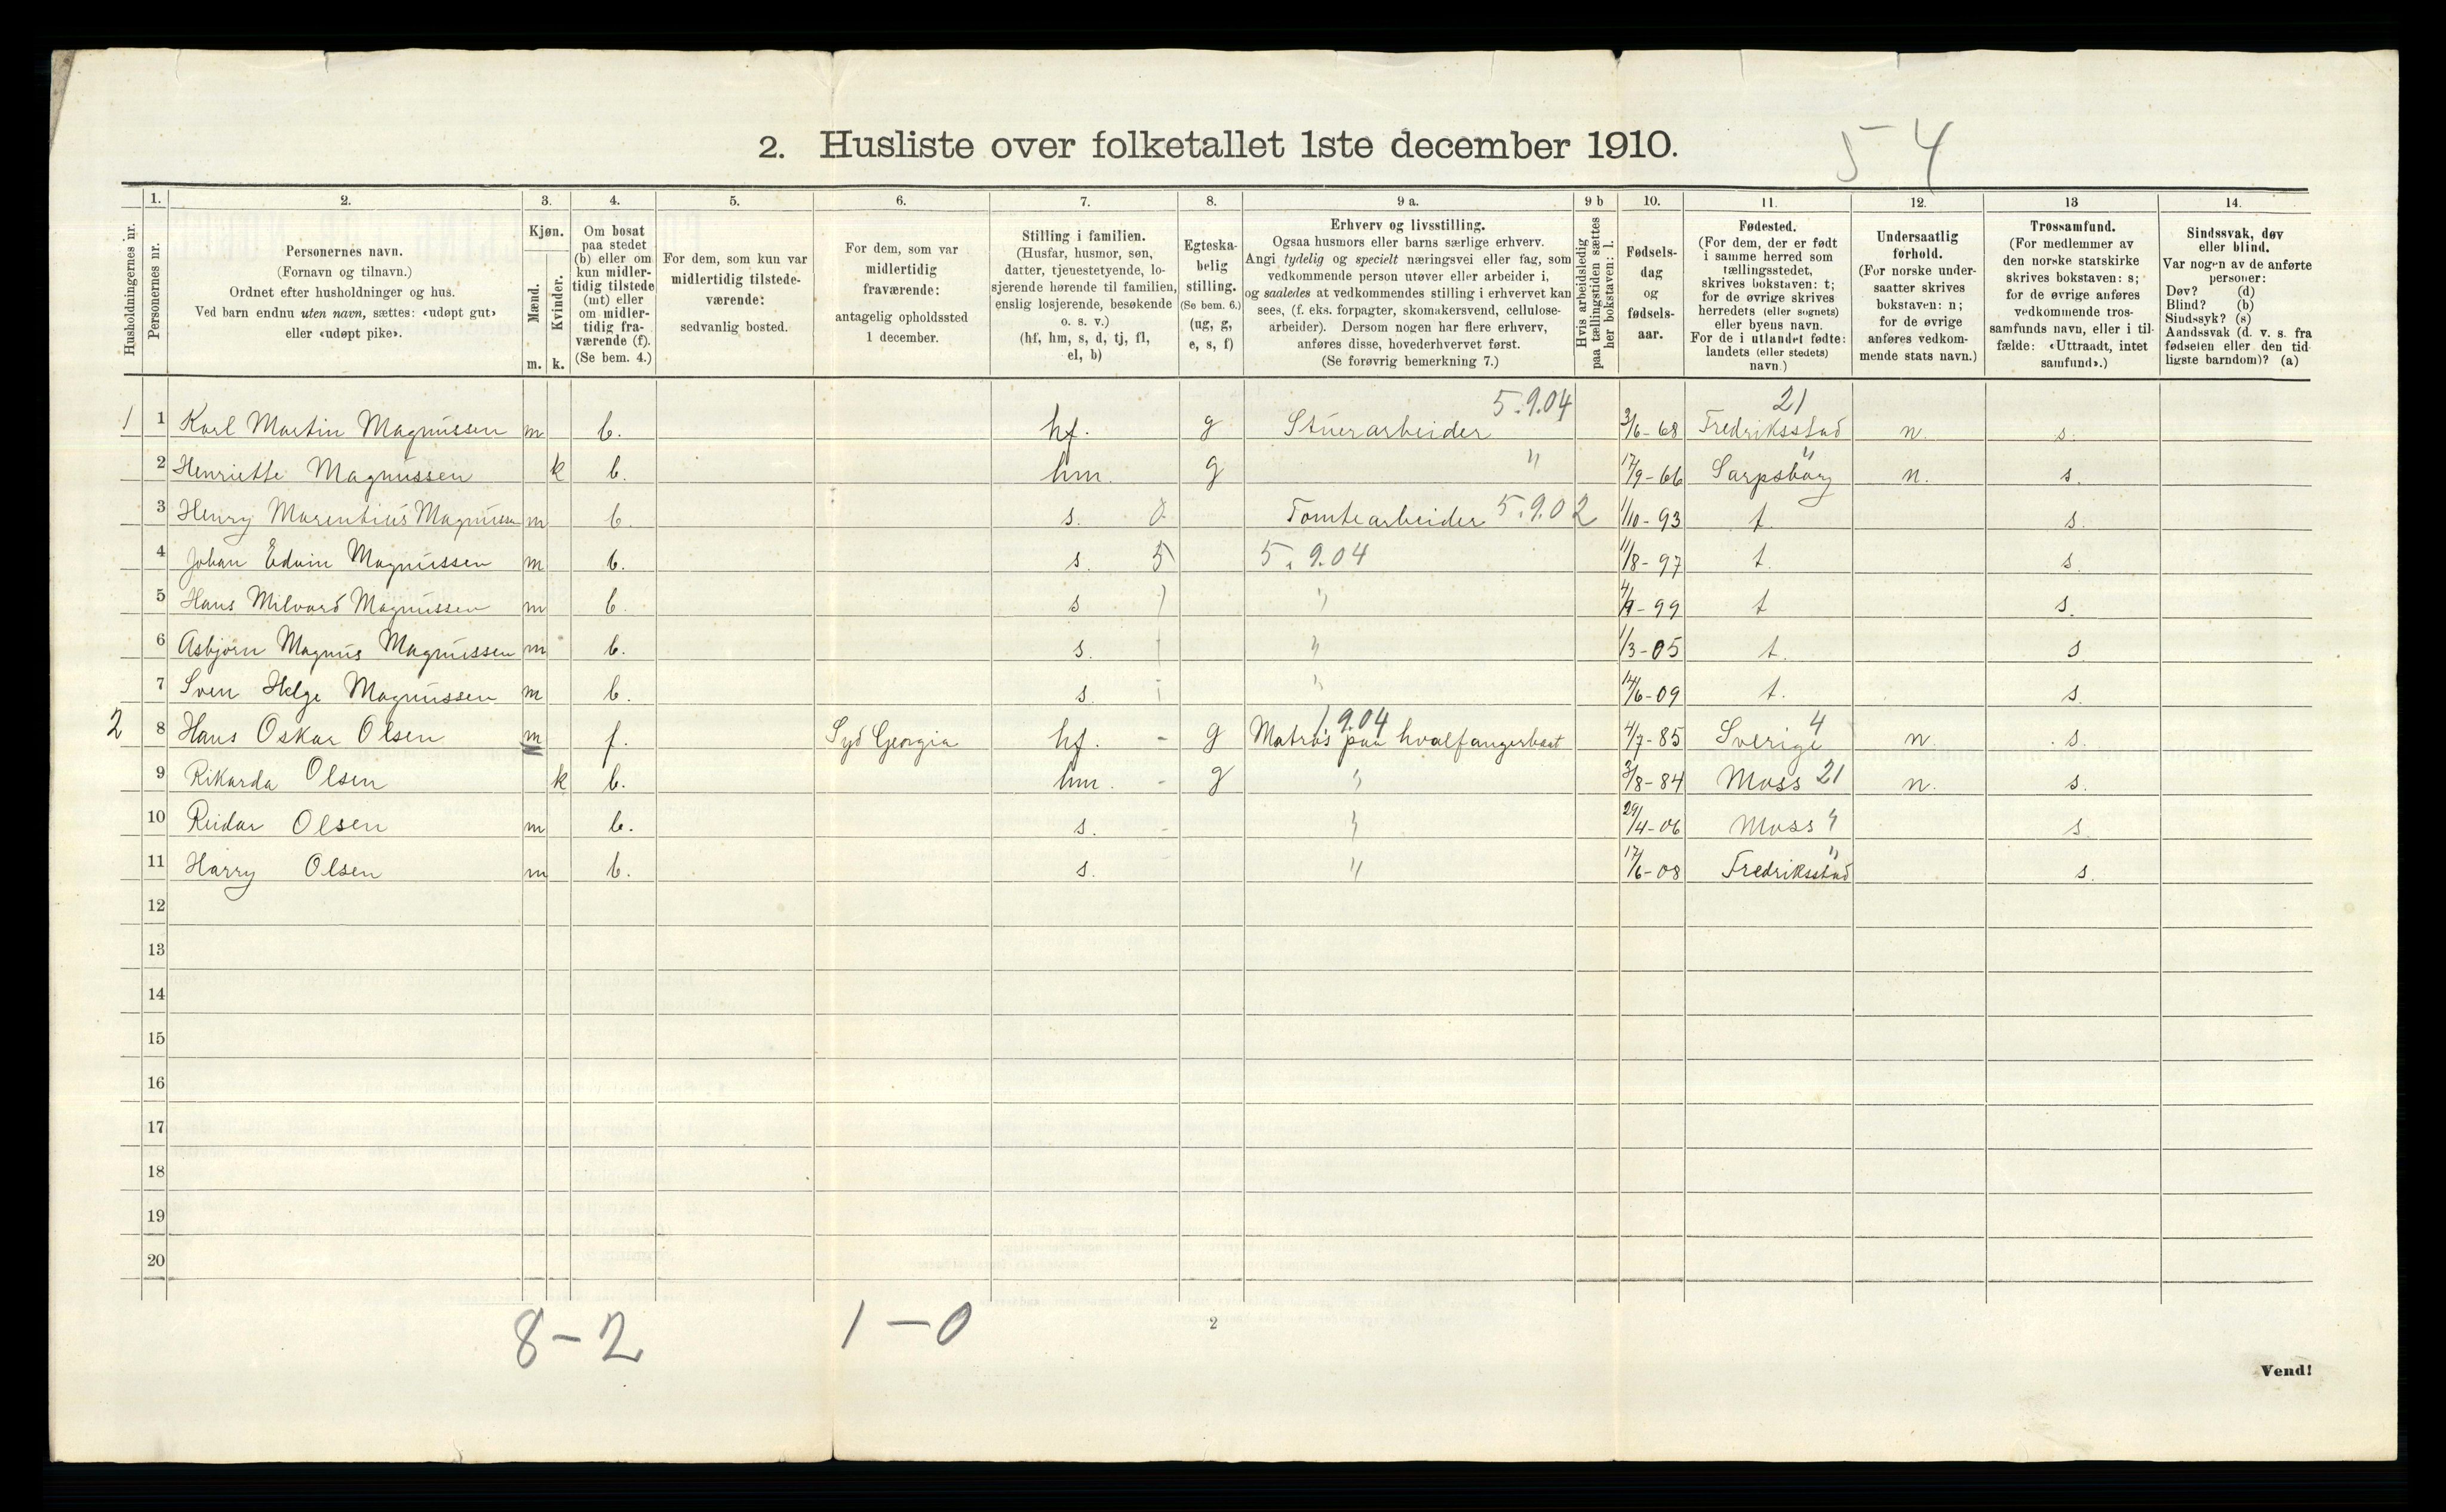 2. Husliste over folketallet 1ste december 1910.
5 4
Husholdningernes nr.
1.
Personernes nr.
2.
Personernes navn.
(Fornavn og tilnavn.)
Ordnet efter husholdninger og hus.
Ved barn endnu uten navn, sættes: «udøpt gut»
eller «udøpt pike».
3.
Kjøn.
Mænd.
Kvinder.
m. k.
4.
Om bosat
paa stedet
(b) eller om
kun midler-
tidig tilstede
(mt) eller
om midler-
tidig fra-
værende (f).
(Se bem. 4.)
5.
For dem, som kun var
midlertidig tilstede-
værende:
sedvanlig bosted.
6.
For dem, som var
midlertidig
fraværende:
antagelig opholdssted
1 december.
7.
Stilling i familien.
(Husfar, husmor, søn,
datter, tjenestetyende, lo-
sjerende hørende til familien,
enslig losjerende, besøkende
o. s. v.)
(hf, hm, s, d, tj, fl,
el, b)
8.
Egteska-
belig
stilling.
(Se bem. 6.)
(ug, g,
e, s, f)
9 a.
Erhverv og livsstilling.
Ogsaa husmors eller barns særlige erhverv.
Angi tydelig og specielt næringsvei eller fag, som
vedkommende person utøver eller arbeider i,
og saaledes at vedkommendes stilling i erhvervet kan
sees, (f. eks. forpagter, skomakersvend, cellulose-
arbeider). Dersom nogen har flere erhverv,
anføres disse, hovederhvervet først.
(Se forøvrig bemerkning 7.)
9 b
Hvis arbeidsledig
paa tællingstiden sættes
her bokstaven: l.
10.
Fødsels-
dag
og
fødsels-
aar.
11.
Fødested.
(For dem, der er født
i samme herred som
tællingsstedet,
skrives bokstaven: t;
for de øvrige skrives
herredets (eller sognets)
eller byens navn.
For de i utlandet fødte:
landets (eller stedets)
navn.)
12.
Undersaatlig
forhold.
(For norske under-
saatter skrives
bokstaven: n;
for de øvrige
anføres vedkom-
mende stats navn.)
13
Trossamfund.
(For medlemmer av
den norske statskirke
skrives bokstaven: s;
for de øvrige anføres
vedkommende tros-
samfunds navn, eller i til-
fælde: «Uttraadt, intet
samfund».)
14.
Sindssvak, døv
eller blind.
Var nogen av de anførte
personer:
Døv? (d)
Blind? (b)
Sindssyk? (s)
Aandssvak (d. v. s. fra
fødselen eller den tid-
ligste barndom)? (a)
5.9.04 21
1 1 Karl Martin Magnussen m b. hf. g Stuerarbeider 3/6-68 Fredriksstad n. s.
2 Henriette Magnussen k b. hm. g " 17/9-66 Sarpsborg " n. s.
3 Henry Marentius Magnussen m b. s. 0 Tomtearbeider 5.9.02 1/10-93 t. s.
4 Johan Edvin Magnussen m b. s. 5 5.9.04 11/8-97 t. s.
5 Hans Milvard Magnussen m b. s " 99 t s.
6 Asbjørn Magnus Magnussen m b. s. " 1/3-05 t. s
7 Sven Helge Magnussen m b. s. " 14/6-09 t. s.
1.9.04 4
2 8 Hans Oskar Olsen m f. Syd Georgia hf. - g Matros paa hvalfangerbaat 4/7-85 Sverige n. s.
9 Rikarda Olsen k b. hm. - g " 3/8-84 Moss 21 n. s.
10 Reidar Olsen m b. s. - " 29/4-06 Moss " s.
11 Harry Olsen m b. s. " 17/6-08 Fredriksstad " s.
12
13
14
15
16
17
18
19
20
8-2 1-0
2
Vend!